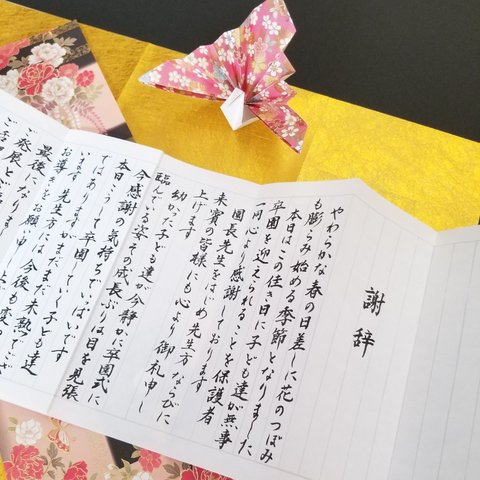 謝辞
やわらかな春の日差しに花のつぼみ
も膨らみ始める季節となりました
本日はこの佳き日に子ども達が無事
卒園を迎えられることを保護者
一同心より感謝しております
園長先生をはじめ先生方ならびに
来賓の皆様にも心より御礼申し
上げます
幼かった子ども達が今静かに卒園式に
臨んでいる姿その成長ぶりは目を見張
今感謝の気持ちでいっぱいです
本日こうして卒園してく子ども達
ではありますがまだまだ未熟でござ
います 先生方には今後も
お導きをお願い
最後になりま
ご発展と
ご活